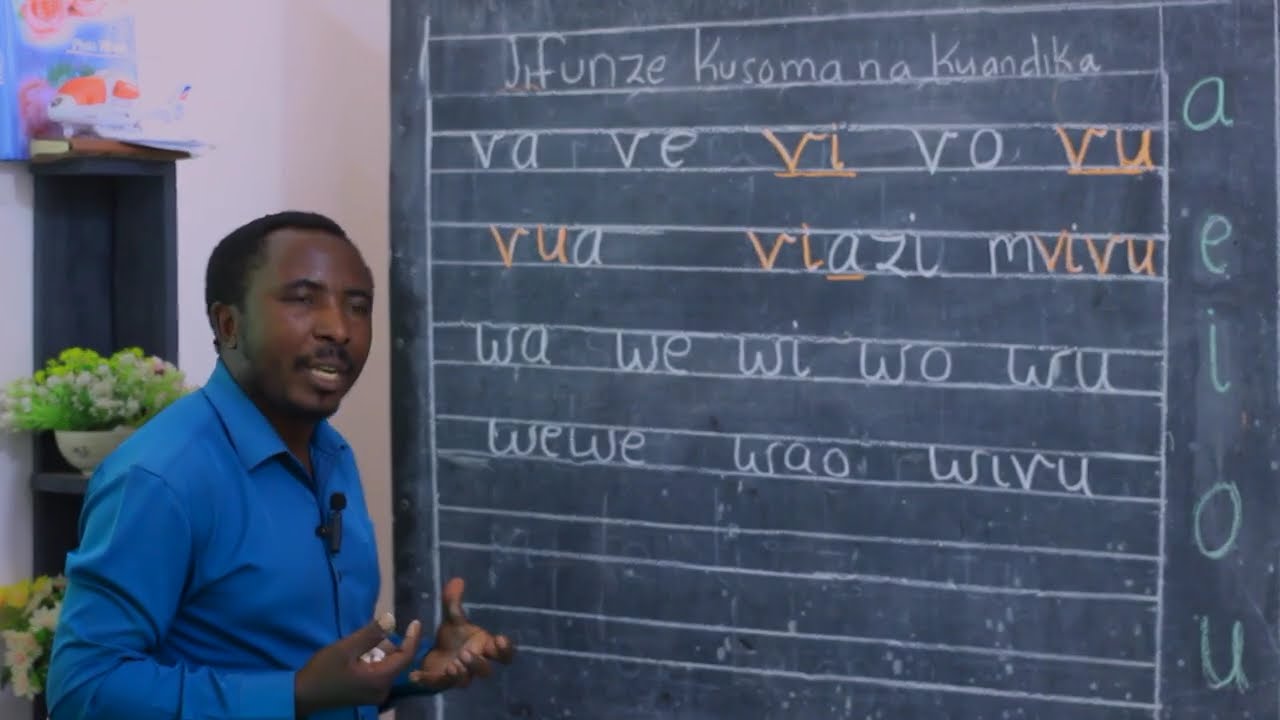 Jifunze Kusoma na Kuandika
va ve vi vo vu
vua viazi mvivu
wa we wi wo wu
wewe wao wivu
a
e
i
o
u